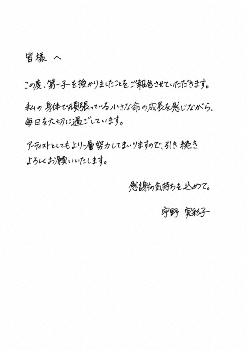 皆様へ
この度、第一子を授かりましたことをご報告させていただきます。
私の身体で頑張っている小さな命の成長を感じながら、
毎日を大切に過ごしています。
アーティストとしてもより一層努力してまいりますので、引き続き
よろしくお願いいたします。
感謝の気持ちを込めて。
宇野実彩子